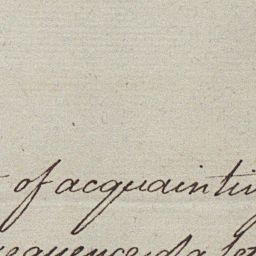 of acquaintin
equence of a let